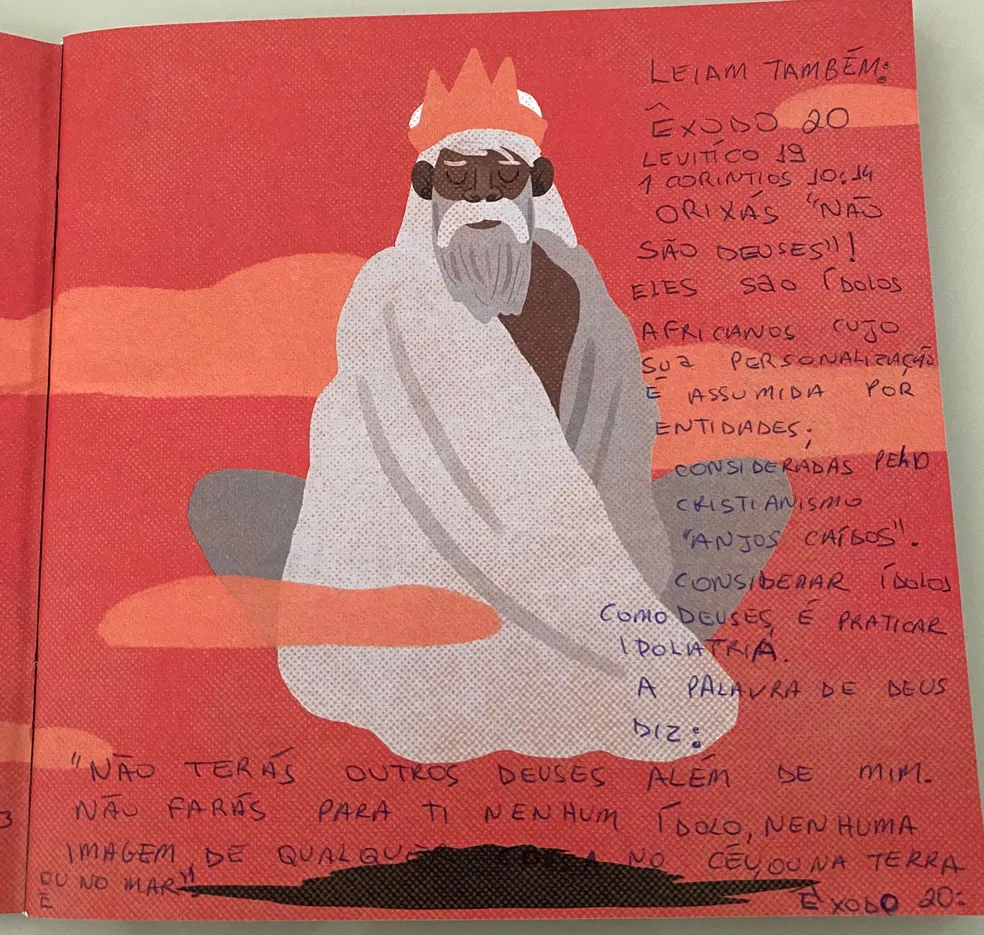 LEIAM TAMBÉM:
ÊXODO 20
LEVITÍCO 19
1 CORINTIOS 10:14
ORIXÁS "NÃO
SÃO DEUSES"!
ELES SÃO ÍDOLOS
AFRICANOS CUJO
SUA PERSONALIZAÇÃO
É ASSUMIDA POR
ENTIDADES;
CONSIDERADAS PELO
CRISTIANISMO
"ANJOS CAÍDOS".
CONSIDERAR ÍDOLOS
COMO DEUSES, É PRATICAR
IDOLATRIA.
A PALAVRA DE DEUS
DIZ:
"NÃO TERÁS OUTROS DEUSES ALÉM DE MIM.
NÃO FARÁS PARA TI NENHUM ÍDOLO, NENHUMA
IMAGEM DE QUALQUER COISA NO CÉU, OU NA TERRA
3
OU NO MAR"
Ê
ÊXODO 20: